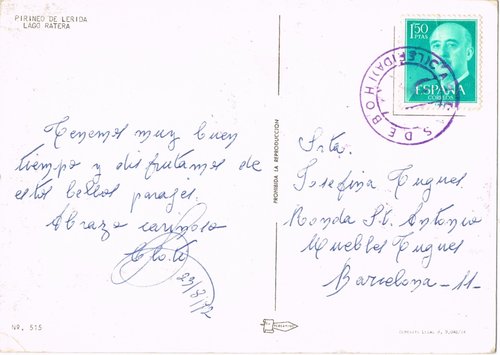 PIRINEO DE LERIDA
LAGO RATERA
Tenemos muy buen
tiempo y disfrutamos de
estos bellos parajes.
Abrazo cariñoso
23/8/72
NR. 515
PROHIBIDA LA REPRODUCCION
1'50
PTAS
ESPAÑA
CORREOS
Srta.
Josefina Tugues
Ronda St. Antonio
Muebles Tugues
Barcelona -11-